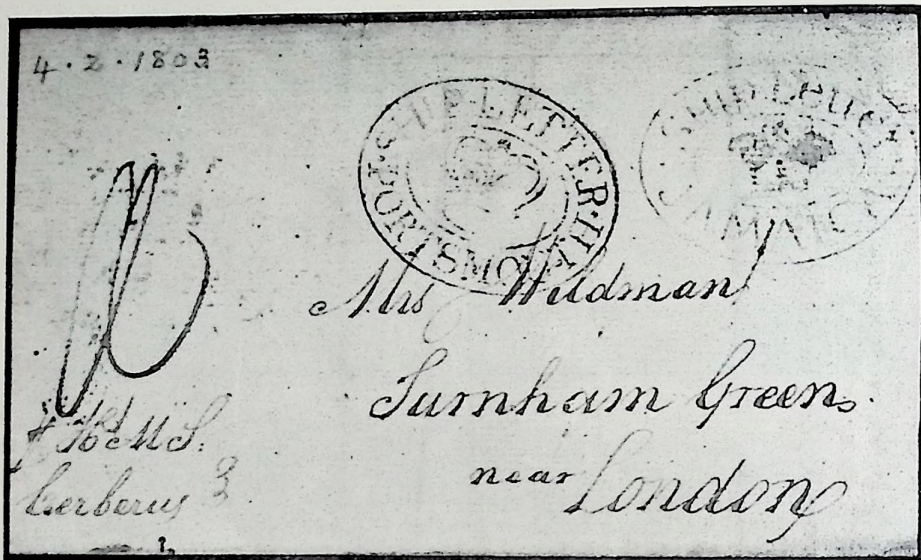 4.2.1803
SHIP LETTER
PORTSMOUTH
Ship Letter
JAMAICA
Mrs Wildman
Turnham Green
near London
H.M.S.
Cerberus